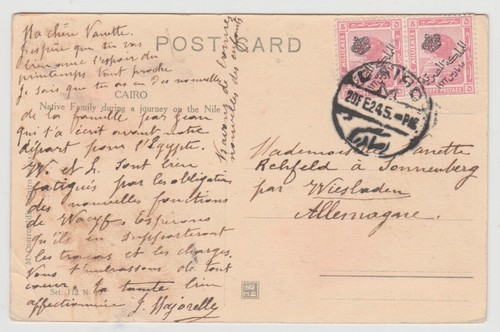 POSTCARD
CAIRO
Native Family during a journey on the Nile
Ma chère Nanette.
J'espère que tu vas
bien avec l'espoir du
printemps tout proche
Je sais que tu as eu des nouvelles
de la famille par Jean
qui t'a écrit avant notre
départ pour l'Egypte.
W. et L. sont bien
fatigués par les obligations
des nouvelles fonctions
de Espérons
qu'ils en supporteront
les tracas et les charges.
Nous t'embrassons de tout
coeur. ta tante bien
affectionnée J. Majorelle
nouvelles des enfants
CAIRO
20 FE 24 5 - PM
Mademoiselle Nanette
Rehfeld à Sonnenberg
par Wiesbaden
Allemagne.